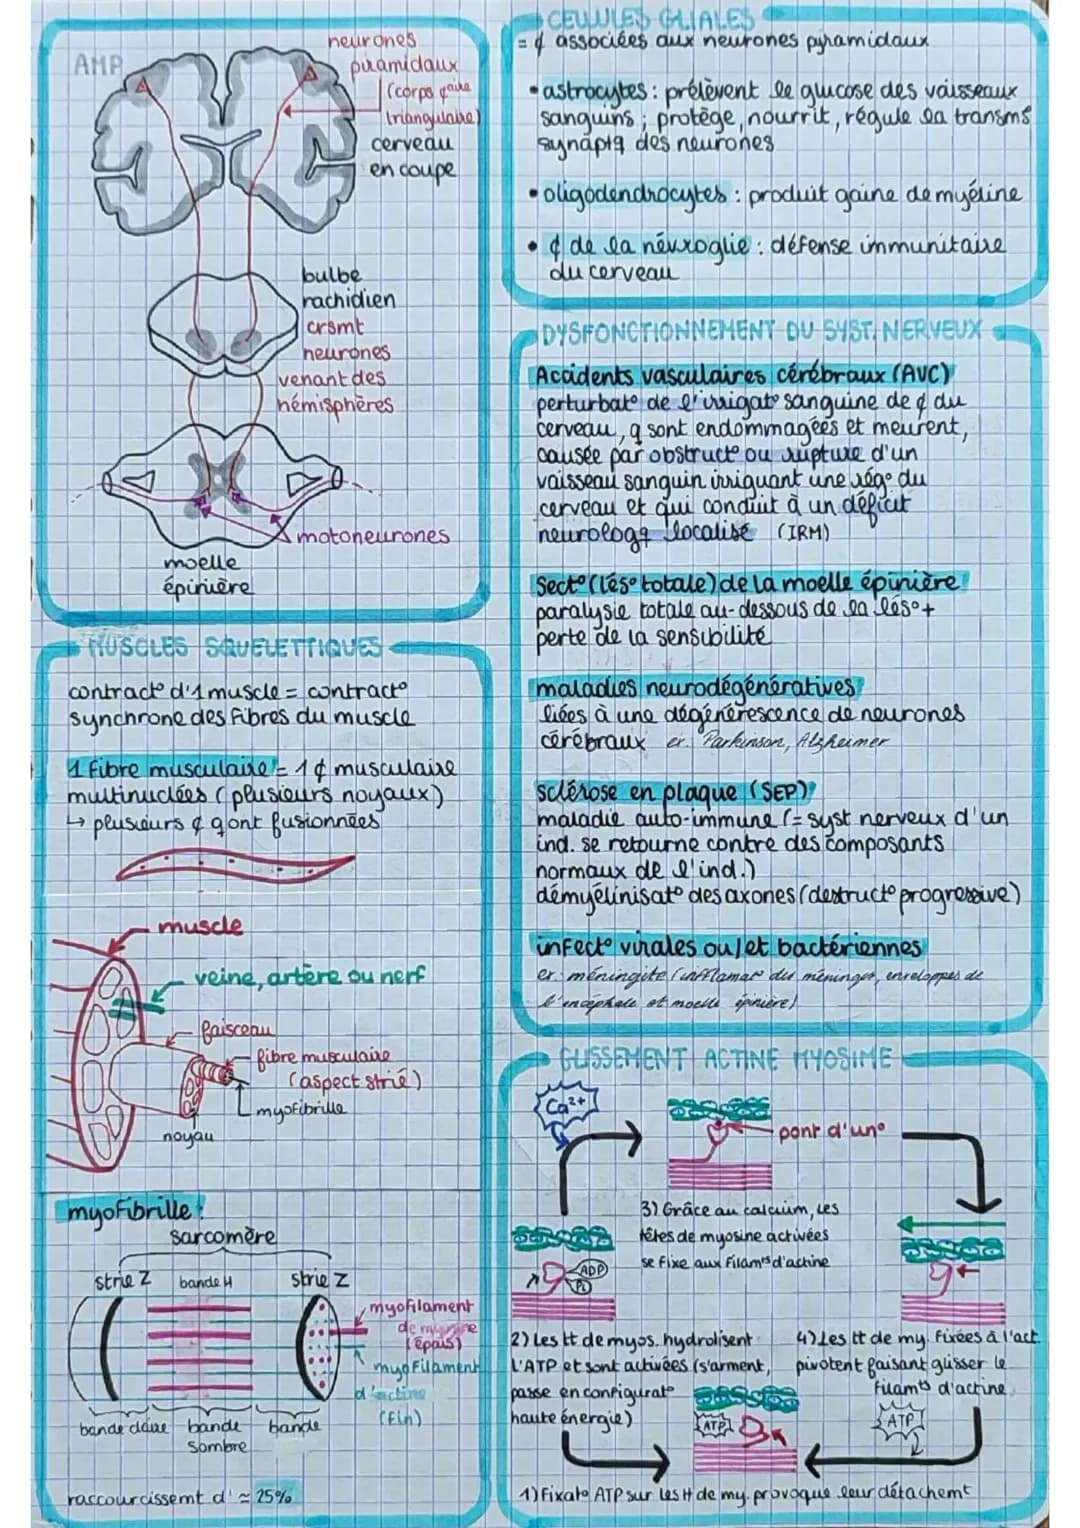 AMP
neurones
piramidaux
(corps
triangulaire)
cerveau
en coupe
bulbe
rachidien
crsmt
neurones
venant des
hémisphères
motoneurones
moelle
épinière
MUSCLES SQUELETTIQUES
contract° d'1 muscle = contract°
synchrone des fibres du muscle
1 fibre musculaire = 1 ¢ musculaire
multinuclées (plusieurs noyaux)
↳ plusieurs ¢ qont fusionnées
muscle
veine, artère ou nerf
faisceau
fibre musculaire
(aspect strié)
myofibrille
noyau
myofibrille:
sarcomère
strie Z
bande H
strie Z
myofilament
de myosine
(épais)
myofilament
d'actine
(fin)
bande claire
bande
sombre
bande
raccourcissemt d' ≈ 25%
CELLULES GLIALES
= ¢ associées aux neurones pyramidaux
• astrocytes : prélèvent le glucose des vaisseaux
sanguins ; protège, nourrit, régule la transms°
synaptq des neurones
• oligodendrocytes : produit gaine de myéline
• ¢ de la névroglie : défense immunitaire
du cerveau
DYSFONCTIONNEMENT DU SYST. NERVEUX
Accidents vasculaires cérébraux (AVC)
perturbat° de l'irrigat° sanguine de ¢ du
cerveau, q sont endommagées et meurent,
causée par obstruct° ou rupture d'un
vaisseau sanguin irriguant une rég° du
cerveau et qui conduit à un déficit
neurologq localisé (IRM)
Sect° (lés° totale) de la moelle épinière
paralysie totale au-dessous de la lés° +
perte de la sensibilité
maladies neurodégénératives
liées à une dégénérescence de neurones
cérébraux ex: Parkinson, Alzheimer
sclérose en plaque (SEP)
maladie auto-immune (= syst nerveux d'un
ind. se retourne contre des composants
normaux de l'ind.)
démyélinisat° des axones (destruct° progressive)
infect° virales ou/et bactériennes
ex: méningite (inflamat° des méninges, enveloppes de
l'encéphale et moelle épinière)
GLISSEMENT ACTINE MYOSIME
Ca²⁺
pont d'un°
3) Grâce au calcium, les
têtes de myosine activées
se fixe aux filamts d'actine
ADP
Pi
2) Les tt de myos. hydrolisent
l'ATP et sont activées (s'arment,
passe en configurat°
haute énergie)
4) Les tt de my. fixées à l'act.
pivotent faisant glisser le
filamts d'actine
ATP
ATP
1) Fixat° ATP sur les tt de my. provoque leur détachemt